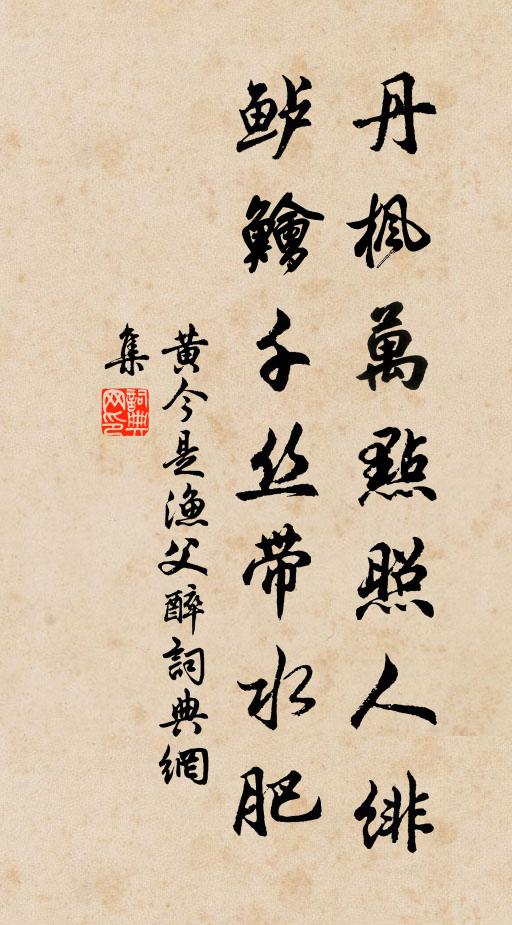 丹楓萬點照人緋
鲈鱠千丝帶水肥
黄今是漁父醉詞典網
集
詞典
网印